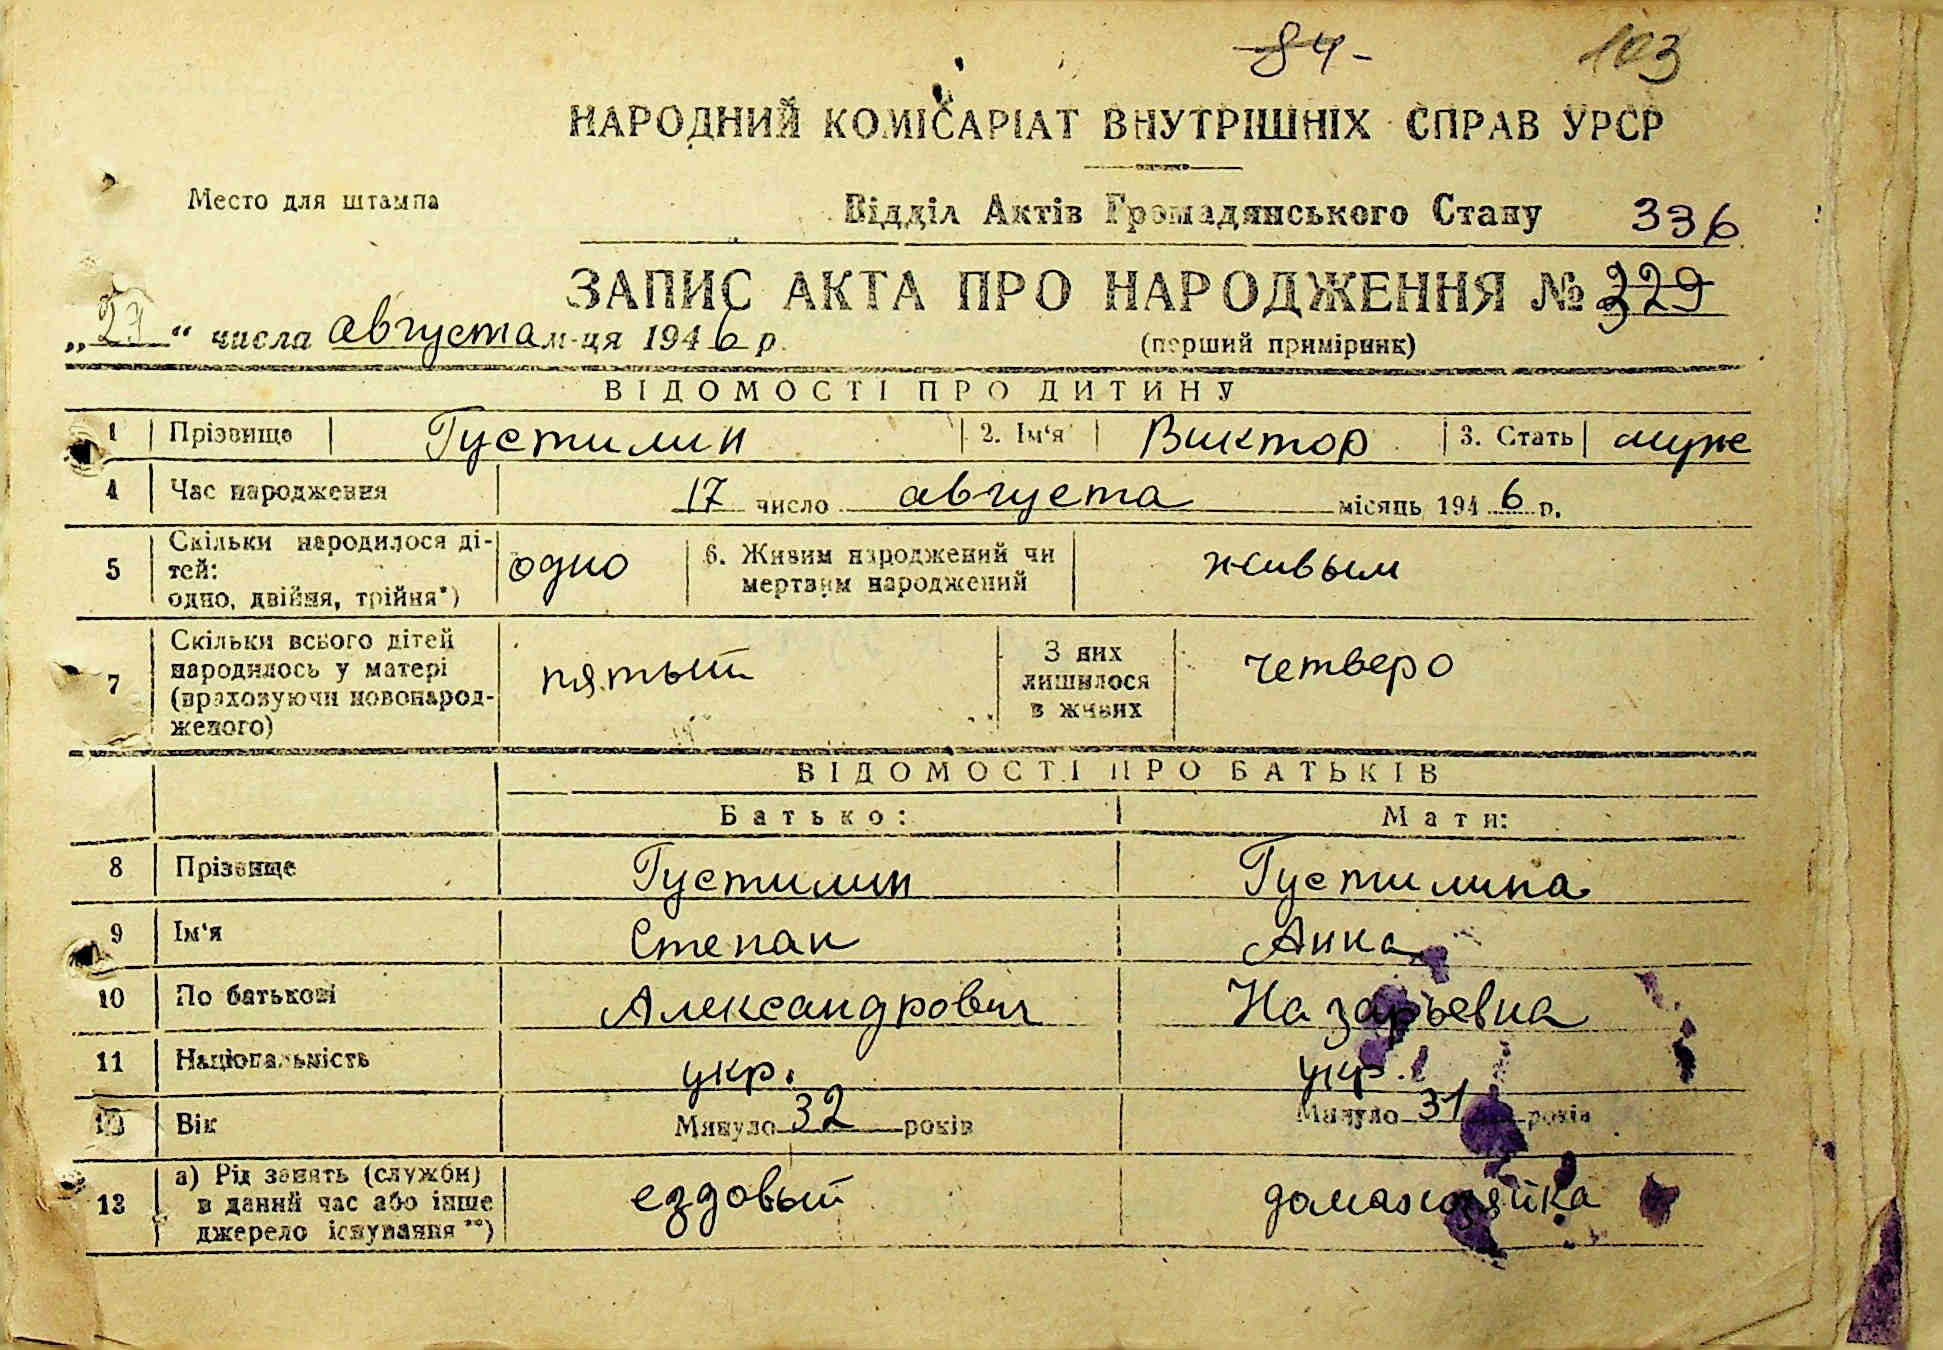 84-
103
НАРОДНИЙ КОМІСАРІАТ ВНУТРІШНІХ СПРАВ УРСР
Место для штампа
Відділ Актів Громадянського Стану 336
ЗАПИС АКТА ПРО НАРОДЖЕННЯ № 329
„27“ числа августа м-ця 1946 р.
(перший примірник)
ВІДОМОСТІ ПРО ДИТИНУ
1 Прізвище Густилин 2. Ім‘я Виктор 3. Стать муж
4 Час народження 17 число августа місяць 1946 р.
5 Скільки народилося ді-
тей:
одно, двійня, трійня*)
одно
6. Живим народжений чи
мертвим народжений
живым
7 Скільки всього дітей
народилось у матері
(враховуючи новонарод-
женого)
пятый
З них
лишилося
в живих
четверо
ВІДОМОСТІ ПРО БАТЬКІВ
Батько: Мати:
8 Прізвище Густилин Густилина
9 Ім‘я Степан Анна
10 По батькові Александрович Назарьевна
11 Національність укр. укр.
12 Вік Минуло 32 років Минуло 31 років
13 а) Рід занять (служби)
в даний час або інше
джерело існування**)
ездовый домахозяйка